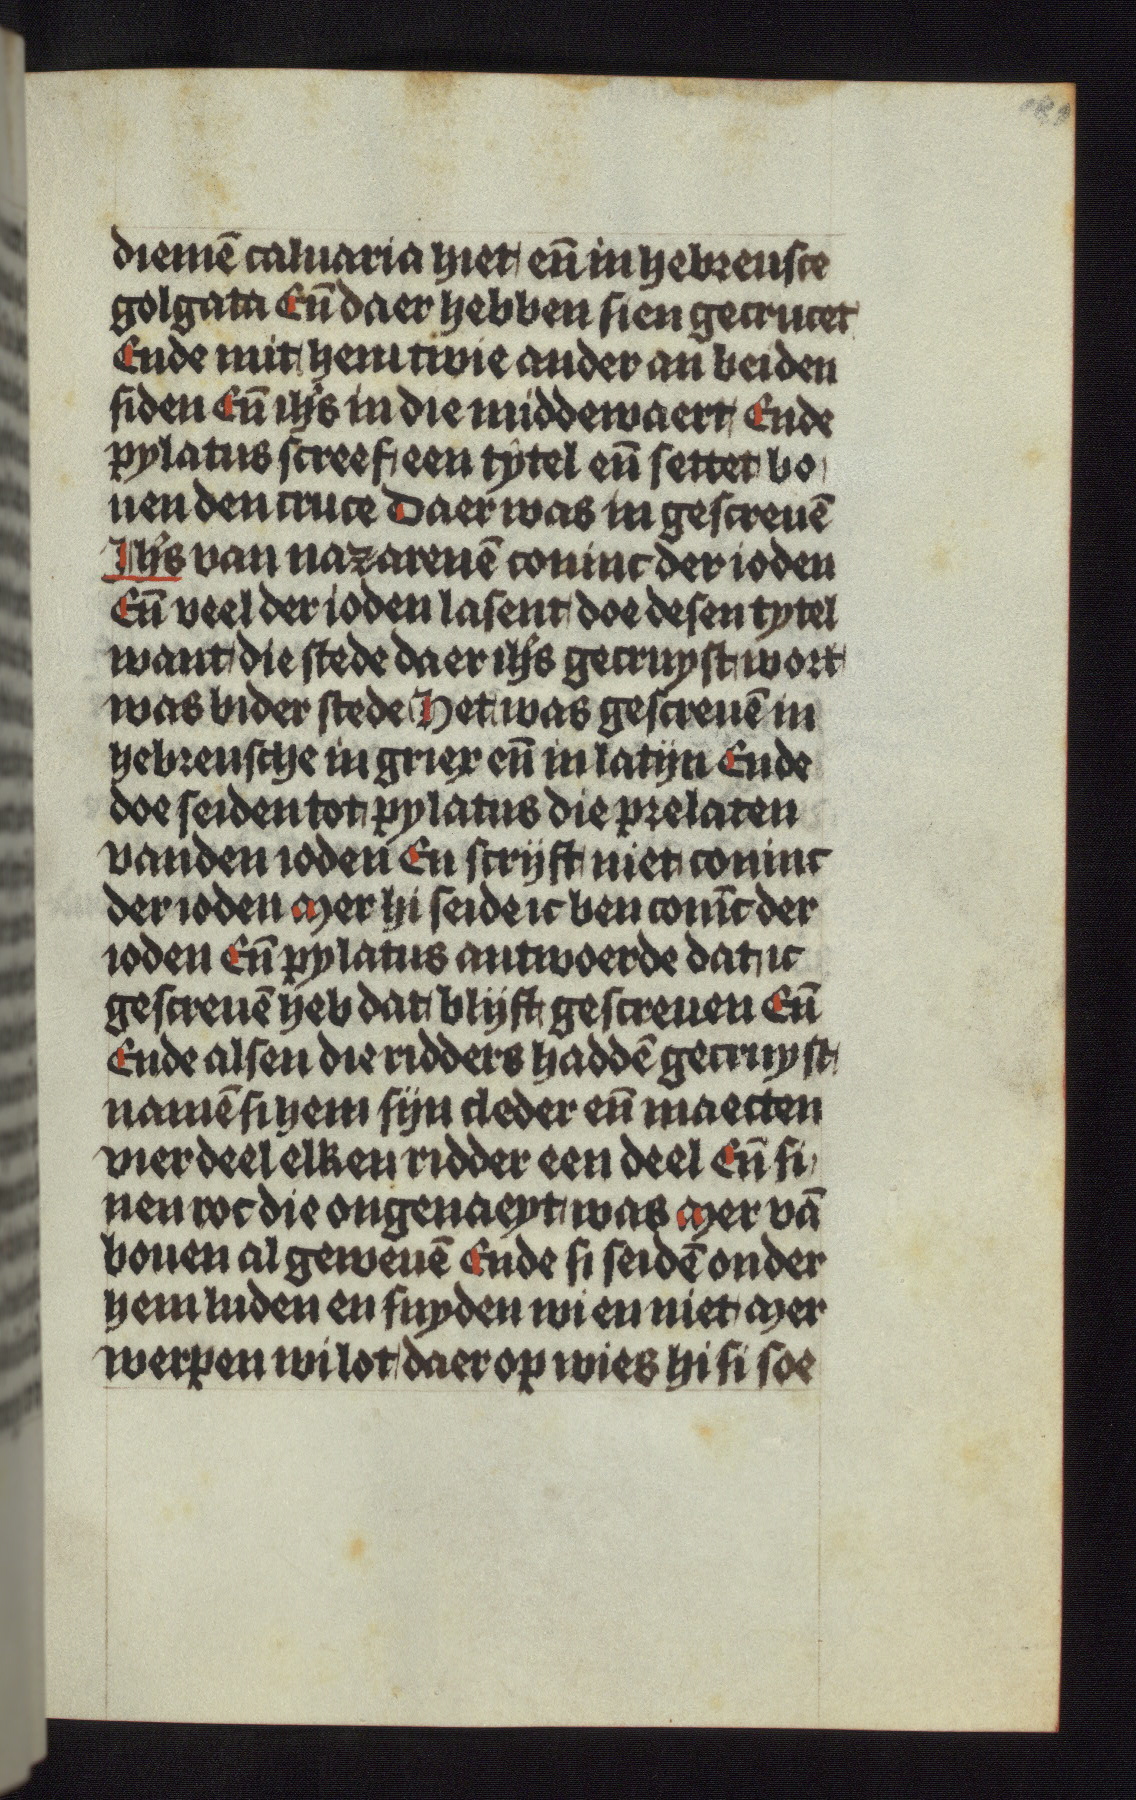 diemē caluaria hiet en̄ in hebreusce
golgata En̄ daer hebben sien gecrucet
Ende mit hem twie ander an beiden
siden En̄ ihs̄ in die middewaert Ende
pylatus screef een tytel en̄ settet bo
uen den cruce Daer was in gescreuē
Ihs̄ van nazarenē coninc der ioden
En̄ veel der ioden lasent doe desen tytel
want die stede daer ihs̄ gecruyst wort
was bider stede Het was gescreuē in
hebreusche in griex en̄ in latijn Ende
doe seiden tot pylatus die prelaten
vanden ioden En scrijft niet coninc
der ioden Mer hi seide ic ben conīc der
ioden En̄ pylatus antwoerde dat ic
gescreuē heb dat blijft gescreuen En̄
Ende alsen die ridders haddē gecruyst
namē si hem sijn cleder en̄ maecten
vier deel elken ridder een deel En̄ si
nen roc die ongenaeyt was Mer vā
bouen al geweuē Ende si seidē onder
hem luden en snyden wi en niet Mer
werpen wi lot daer op wies hi si soe